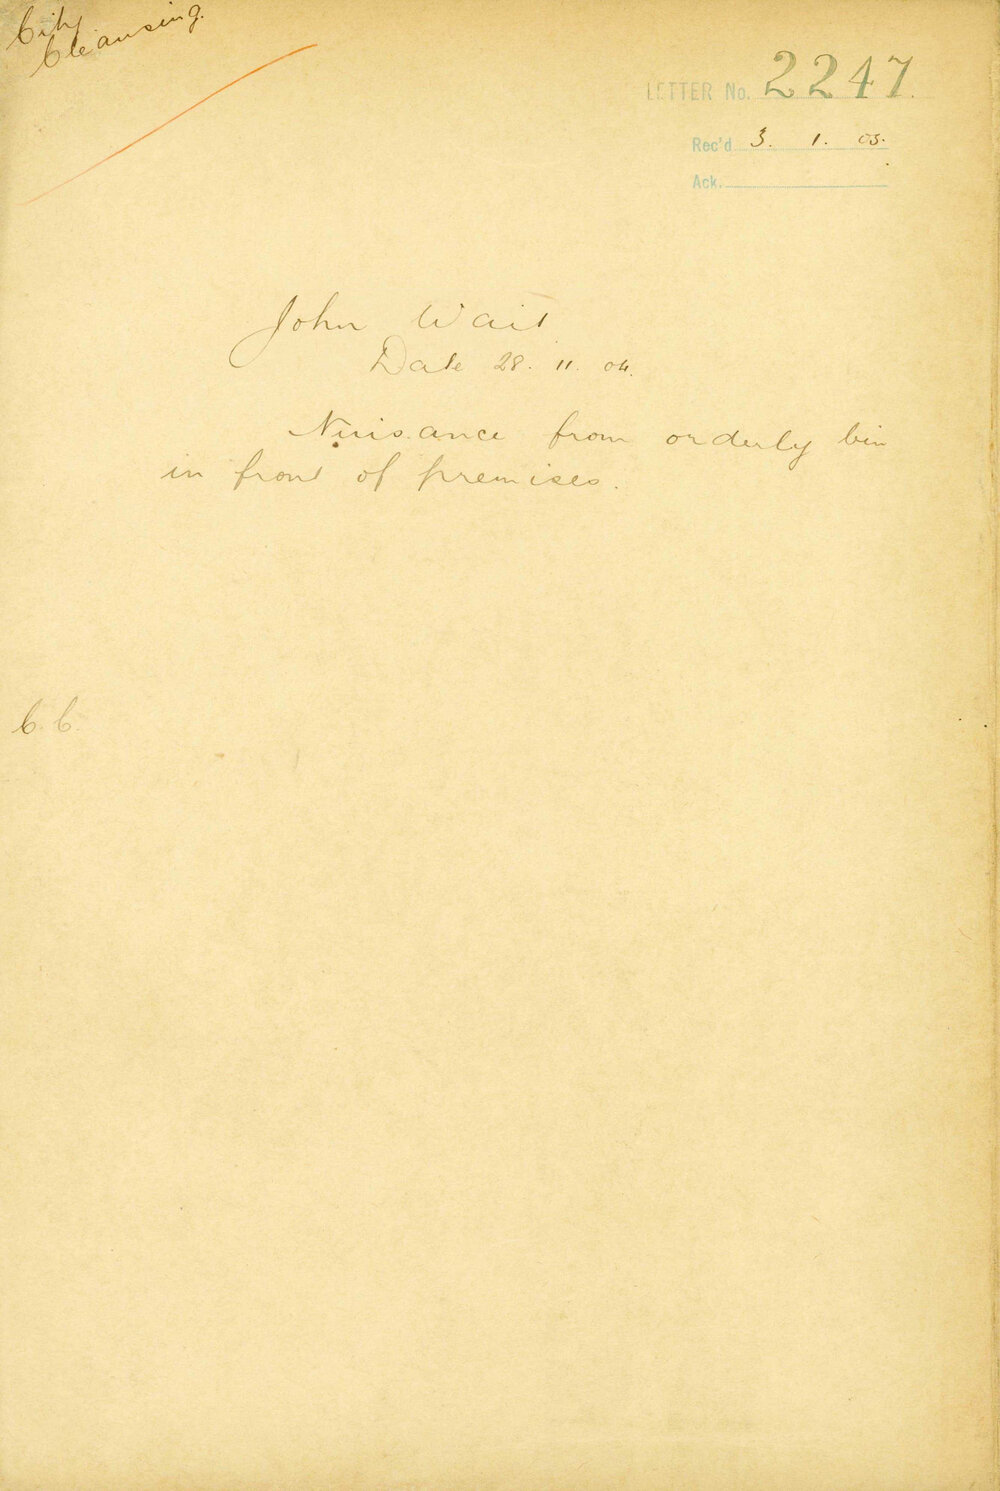 City
Cleansing.
LETTER No. 2247.
Rec'd 3. 1. 05.
Ack.
John Wait
Date 28. 11. 04.
Nuisance from orderly bin
in front of premises.
C. C.